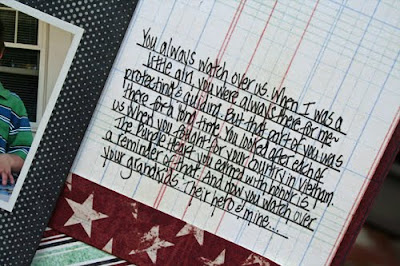 You always watch over us. When I was a
little girl, you were always there for me~
protecting & guiding. But that part of you was
there for a long time. You looked after each of
us when you fought for your country in Vietnam.
The Purple Heart you earned with honor is
a reminder of that. And now you watch over
your grandkids. Their hero & mine....